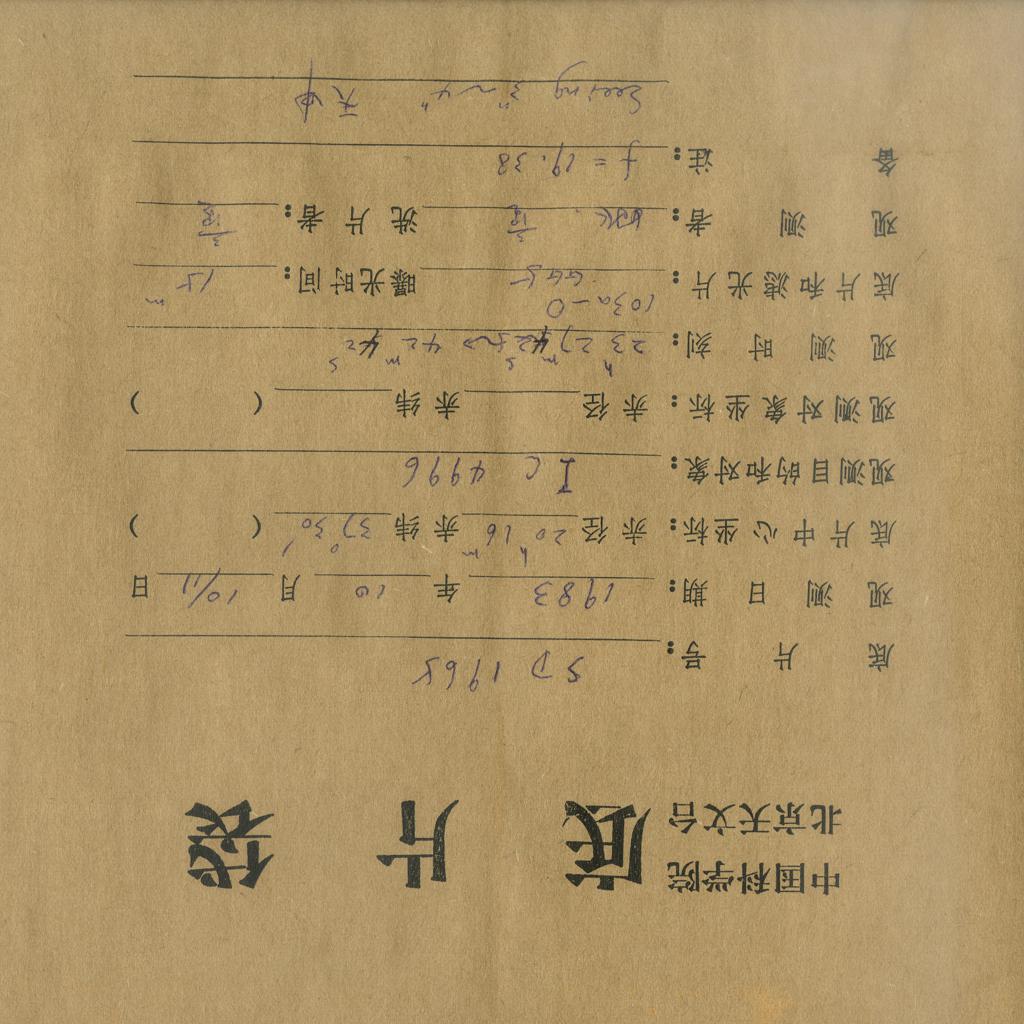 中国科学院
北京天文台
底片袋
底片号: SD 1965
观测日期: 1983 年 10 月 10/11 日
底片中心坐标: 赤径 20h 16m 赤纬 37°30′ ( )
观测目的和对象: IC 4996
观测对象坐标: 赤径 赤纬 ( )
观测时刻: 23h 27m
103a-O
底片和滤光片: GG5 曝光时间: 15m
观测者: 洗片者:
备注: f = 19.38
Seeing 3″~4″ 天中